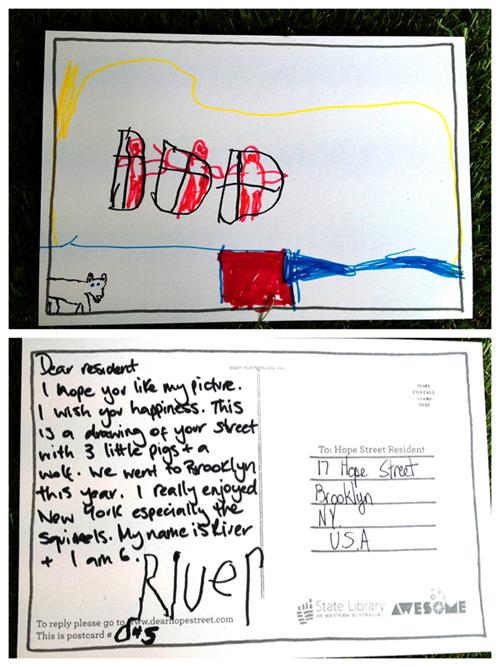 Dear resident
I hope you like my picture.
I wish you happiness. This
is a drawing of your street
with 3 little pigs + a
wolf. We went to Brooklyn
this year. I really enjoyed
New York especially the
squirrels. My name is River
+ I am 6.
River
To reply please go to www.dearhopestreet.com
This is postcard #
PLACE
POSTAGE
STAMP
HERE
To: Hope Street Resident
17 Hope Street
Brooklyn
NY.
U.S.A
State Library
OF WESTERN AUSTRALIA
AWESOME